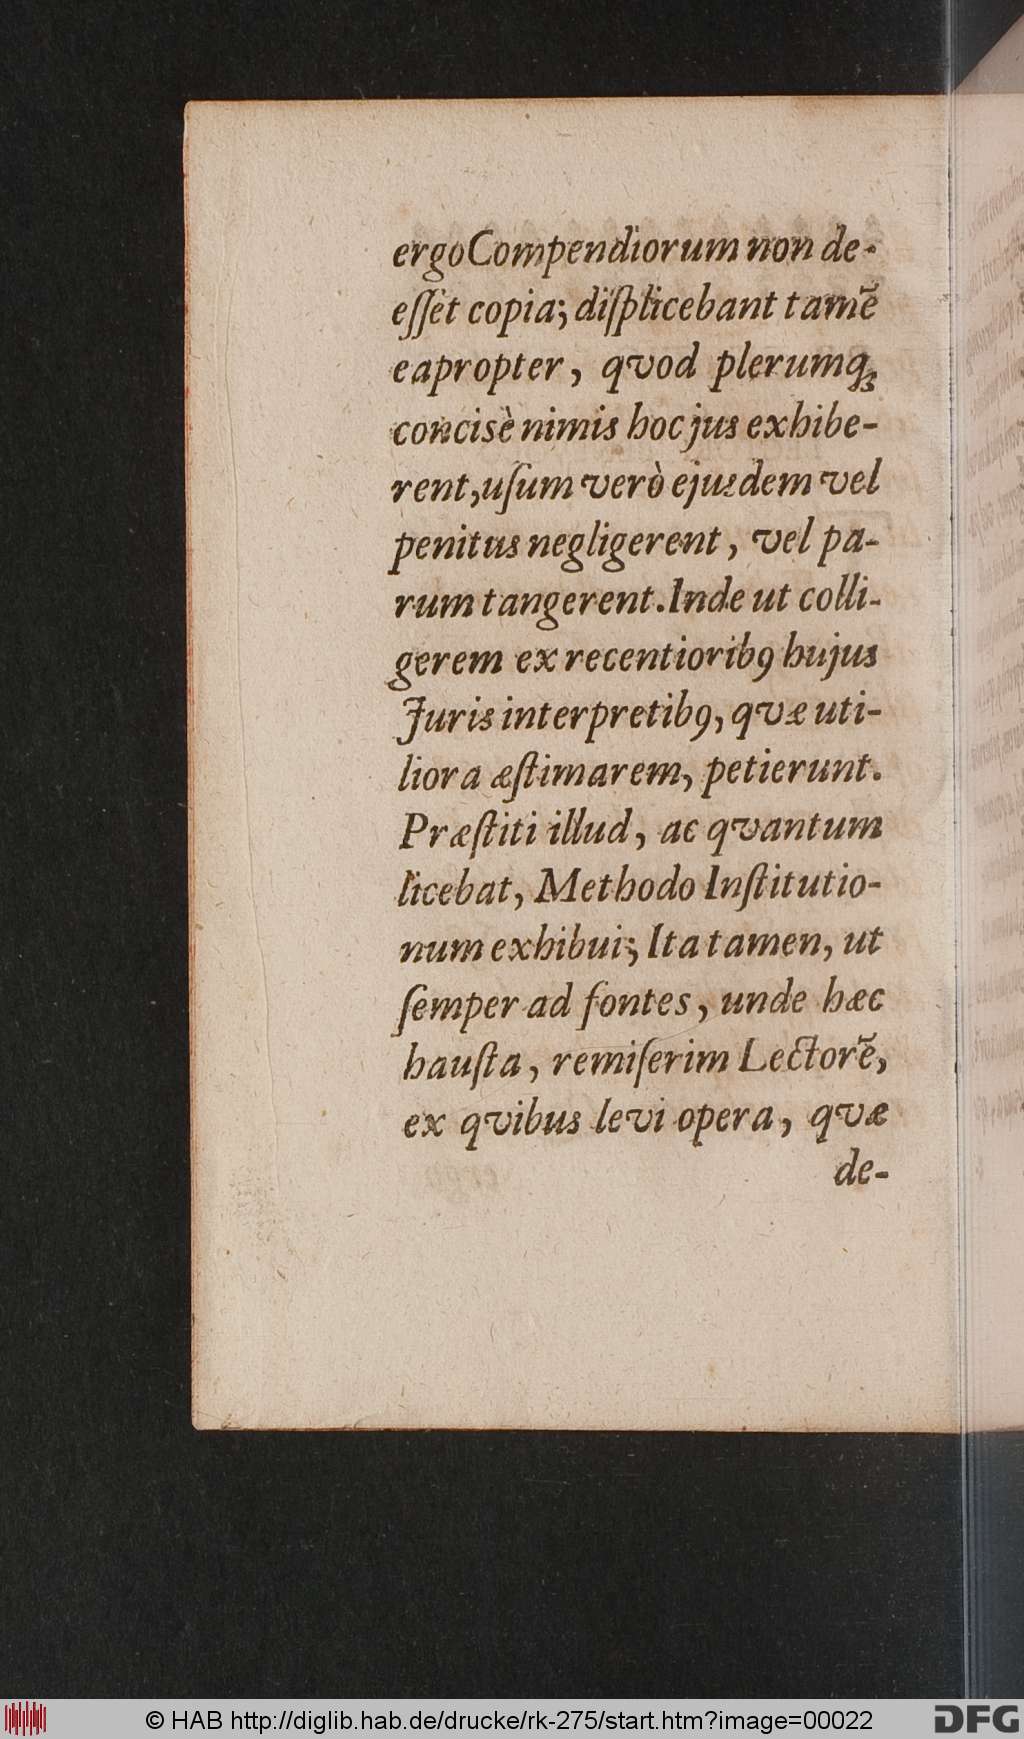 ergo Compendiorum non de-
eſſet copia; diſplicebant tamẽ
eapropter, qvod plerumq́;
concisè nimis hoc jus exhibe-
rent, uſum verò ejusdem vel
penitus negligerent, vel pa-
rum tangerent. Inde ut colli-
gerem ex recentioribꝯ hujus
Juris interpretibꝯ, qvæ uti-
liora æſtimarem, petierunt.
Præſtiti illud, ac qvantum
licebat, Methodo Inſtitutio-
num exhibui; Ita tamen, ut
ſemper ad fontes, unde hæc
hauſta, remiſerim Lectorẽ,
ex qvibus levi opera, qvæ
de-
© HAB http://diglib.hab.de/drucke/rk-275/start.htm?image=00022
DFG